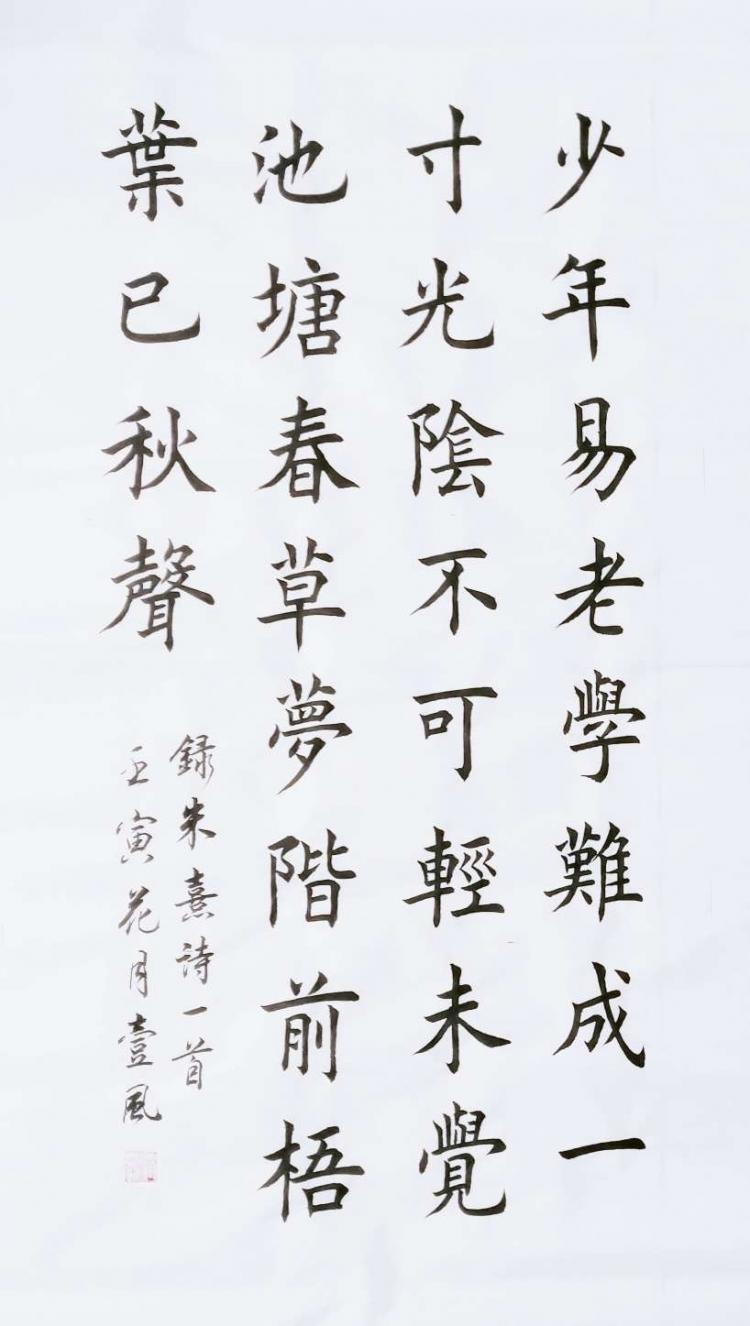 少年易老學難成一
寸光陰不可輕未覺
池塘春草夢階前梧
葉已秋聲
録朱熹詩一首
壬寅花月壹風